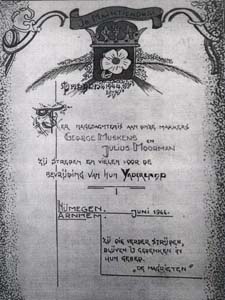 TER NAGEDACHTENIS AAN ONZE MAKKERS
GEORGE MUSKENS
EN
JULIUS MOORMAN
ZIJ STREDEN EN VIELEN VOOR DE
BEVRIJDING VAN HUN VADERLAND
NIJMEGEN.
ARNHEM. JUNI
ZIJ DIE VERDER STRIJDEN,
BLIJVEN U GEDENKEN IN
HUN GEBED.